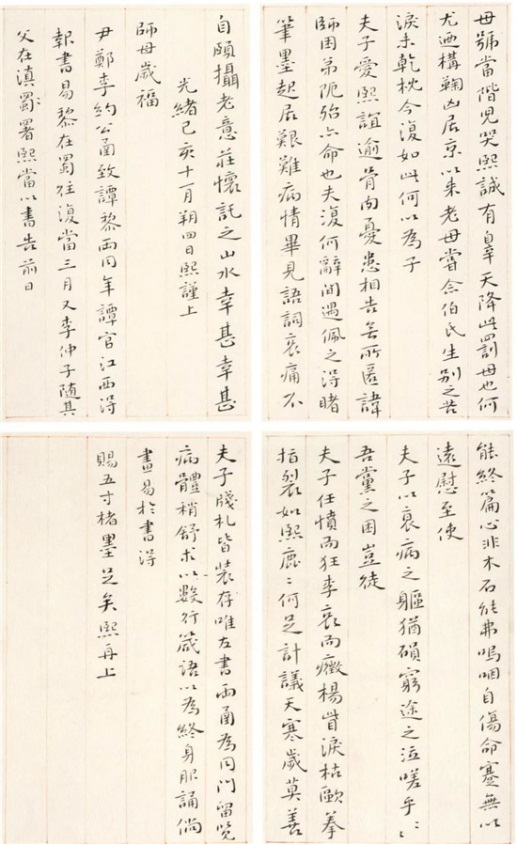 母號當階兒哭熙誠有辠天降此罰母也何
尤迺構鞠凶居京以来老母嘗念伯氏生別之苦
淚未乾枕今復如此何以為子
夫子愛熙誼逾骨肉憂患相告無所匿諱
師困弟阨殆亦命也夫復何辭間遇佩之得睹
筆墨起居艱難病情畢見語詞哀痛不
能終篇心非木石能弗嗚咽自傷命蹇無以
遠慰至使
夫子以衰病之軀猶碩窮途之泣嗟乎嗟乎
吾黨之困豈徒
夫子任憤而狂李哀而癥楊眥淚枯歐拳
指裂如熙鹿鹿何足計議天寒歲莫善
自頤攝老意莊懷託之山水幸甚幸甚
師母歲福
光緒己亥十一月朔四日熙謹上
尹鄭李約公函致譚黎兩同年譚官江西得
報書易黎在蜀往復當三月又李仲子隨其
父在滇蜀署熙當以書告前日
夫子牋札皆裝存唯左書兩函為同門留覽
病體稍舒求以數行箴語以為終身服誦倘
畫易於書得
賜五寸楮墨足矣熙再上